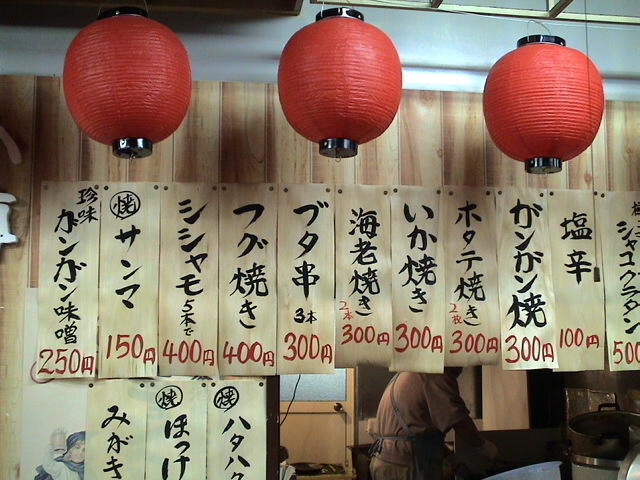 珍味
ガンガン味噌
250円
焼
サンマ
150円
シシャモ
5本で
400円
フグ焼き
400円
ブタ串
3本
300円
海老焼き
2本
300円
いか焼き
300円
ホタテ焼き
2枚
300円
ガンガン焼
300円
塩辛
100円
500
みがき
焼
ほっけ
焼
ハタハタ